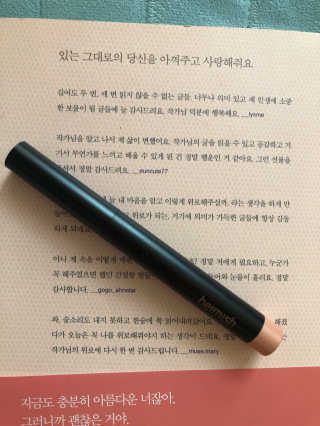 있는 그대로의 당신을 아껴주고 사랑해줘요.
길어도 두 번, 세 번 읽지 않을 수 없는 글들. 너무나 의미 있고 제 인생에 소중
한 보물이 될 글들에 늘 감사드려요. 작가님 덕분에 행복해요. __lysme
작가님을 알고 나서 제 삶이 변했어요. 작가님의 글을 읽을 수 있고 공감하고 거
기서 무언가를 느끼고 배울 수 있게 된 건 정말 행운인 거 같아요. 그런 선물을
정말 감사드려요. __suncute77
늘 내 마음을 알고 이렇게 위로해주실까, 라는 생각을 하게 만
위로가 되는, 거기에 의미가 가득한 글들에 항상 감동
하게 되네요.
어나 제 속을 이렇게 정말 저에게 필요하고, 누군가
꼭 해주었으면 했던 눈물이 흘러요. 정말
감사합니다. __gogo_ahnstar
와, 숨소리도 내지 못하고 한숨에 쭉 읽어내려갔어요. 해졌
다가 오늘은 꼭 나를 위로해줘야지 하는 생각이 드네요.
작가님의 위로에 다시 한 번 감사드립니다. __muse.mary
heimish
지금도 충분히 아름다운 너잖아.
그러니까 괜찮은 거야.